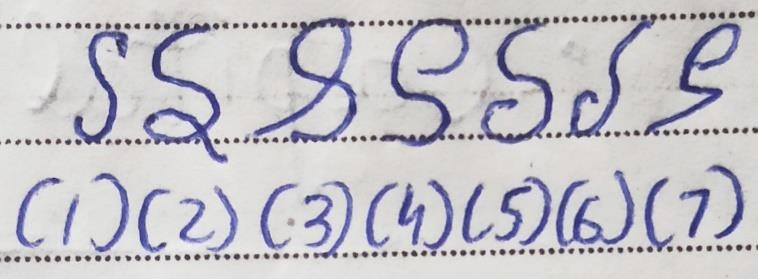 S S S S S S S
(1) (2) (3) (4) (5) (6) (7)